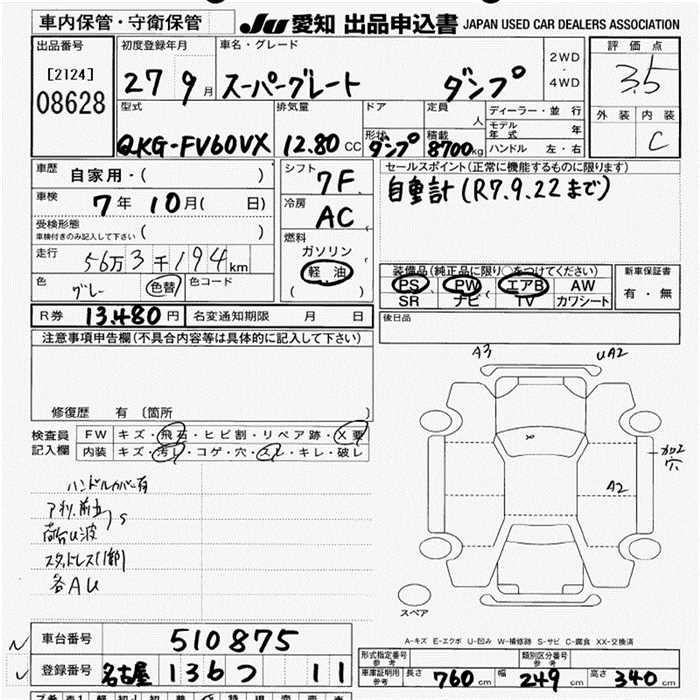 車内保管・守衛保管
JU 愛知 出品申込書 JAPAN USED CAR DEALERS ASSOCIATION
出品番号
[2124]
08628
初度登録年月
27 9月
車名・グレード
スーパーグレート ダンプ
2WD
・
4WD
評価点
3.5
外装 内装
C
型式
QKG-FV60VX
排気量
12.80 CC
ドア
形状
ダンプ
定員
人
積載
8700 kg
ディーラー・並行
モデル年式 年
ハンドル 左・右
車歴
自家用・( )
車検
7年 10月( 日)
受検形態
車検付きのみ記入して下さい ( )
走行
56万3千194 km
色
グレー 色替
色コード
シフト
7F
冷房
AC
燃料
ガソリン
軽油
( )
セールスポイント(正常に機能するものに限ります)
自重計(R7.9.22まで)
装備品(純正品に限り○をつけてください)
PS PW エアB AW
SR ナビ TV カワシート
新車保証書
有・無
R券 13,480円
名変通知期限 月 日
後日品
注意事項申告欄(不具合内容等は具体的に記入して下さい)
修復歴 有 〔箇所 〕
検査員記入欄
FW キズ・飛石・ヒビ割・リペア跡・X要
内装 キズ・汚レ・コゲ・穴・スレ・キレ・破レ
ハンドルカバー有
荷台U波
スタッドレス(1部)
各AU
A3
UA2
A2
穴
スペア
A-キズ E-エクボ U-凹み W-補修跡 S-サビ C-腐食 XX-交換済
車台番号 510875
登録番号 名古屋 136 つ 11
形式指定番号
参考
類別区分番号
参考
車庫証明用
参考
長さ 760 cm 幅 249 cm 高さ 340 cm